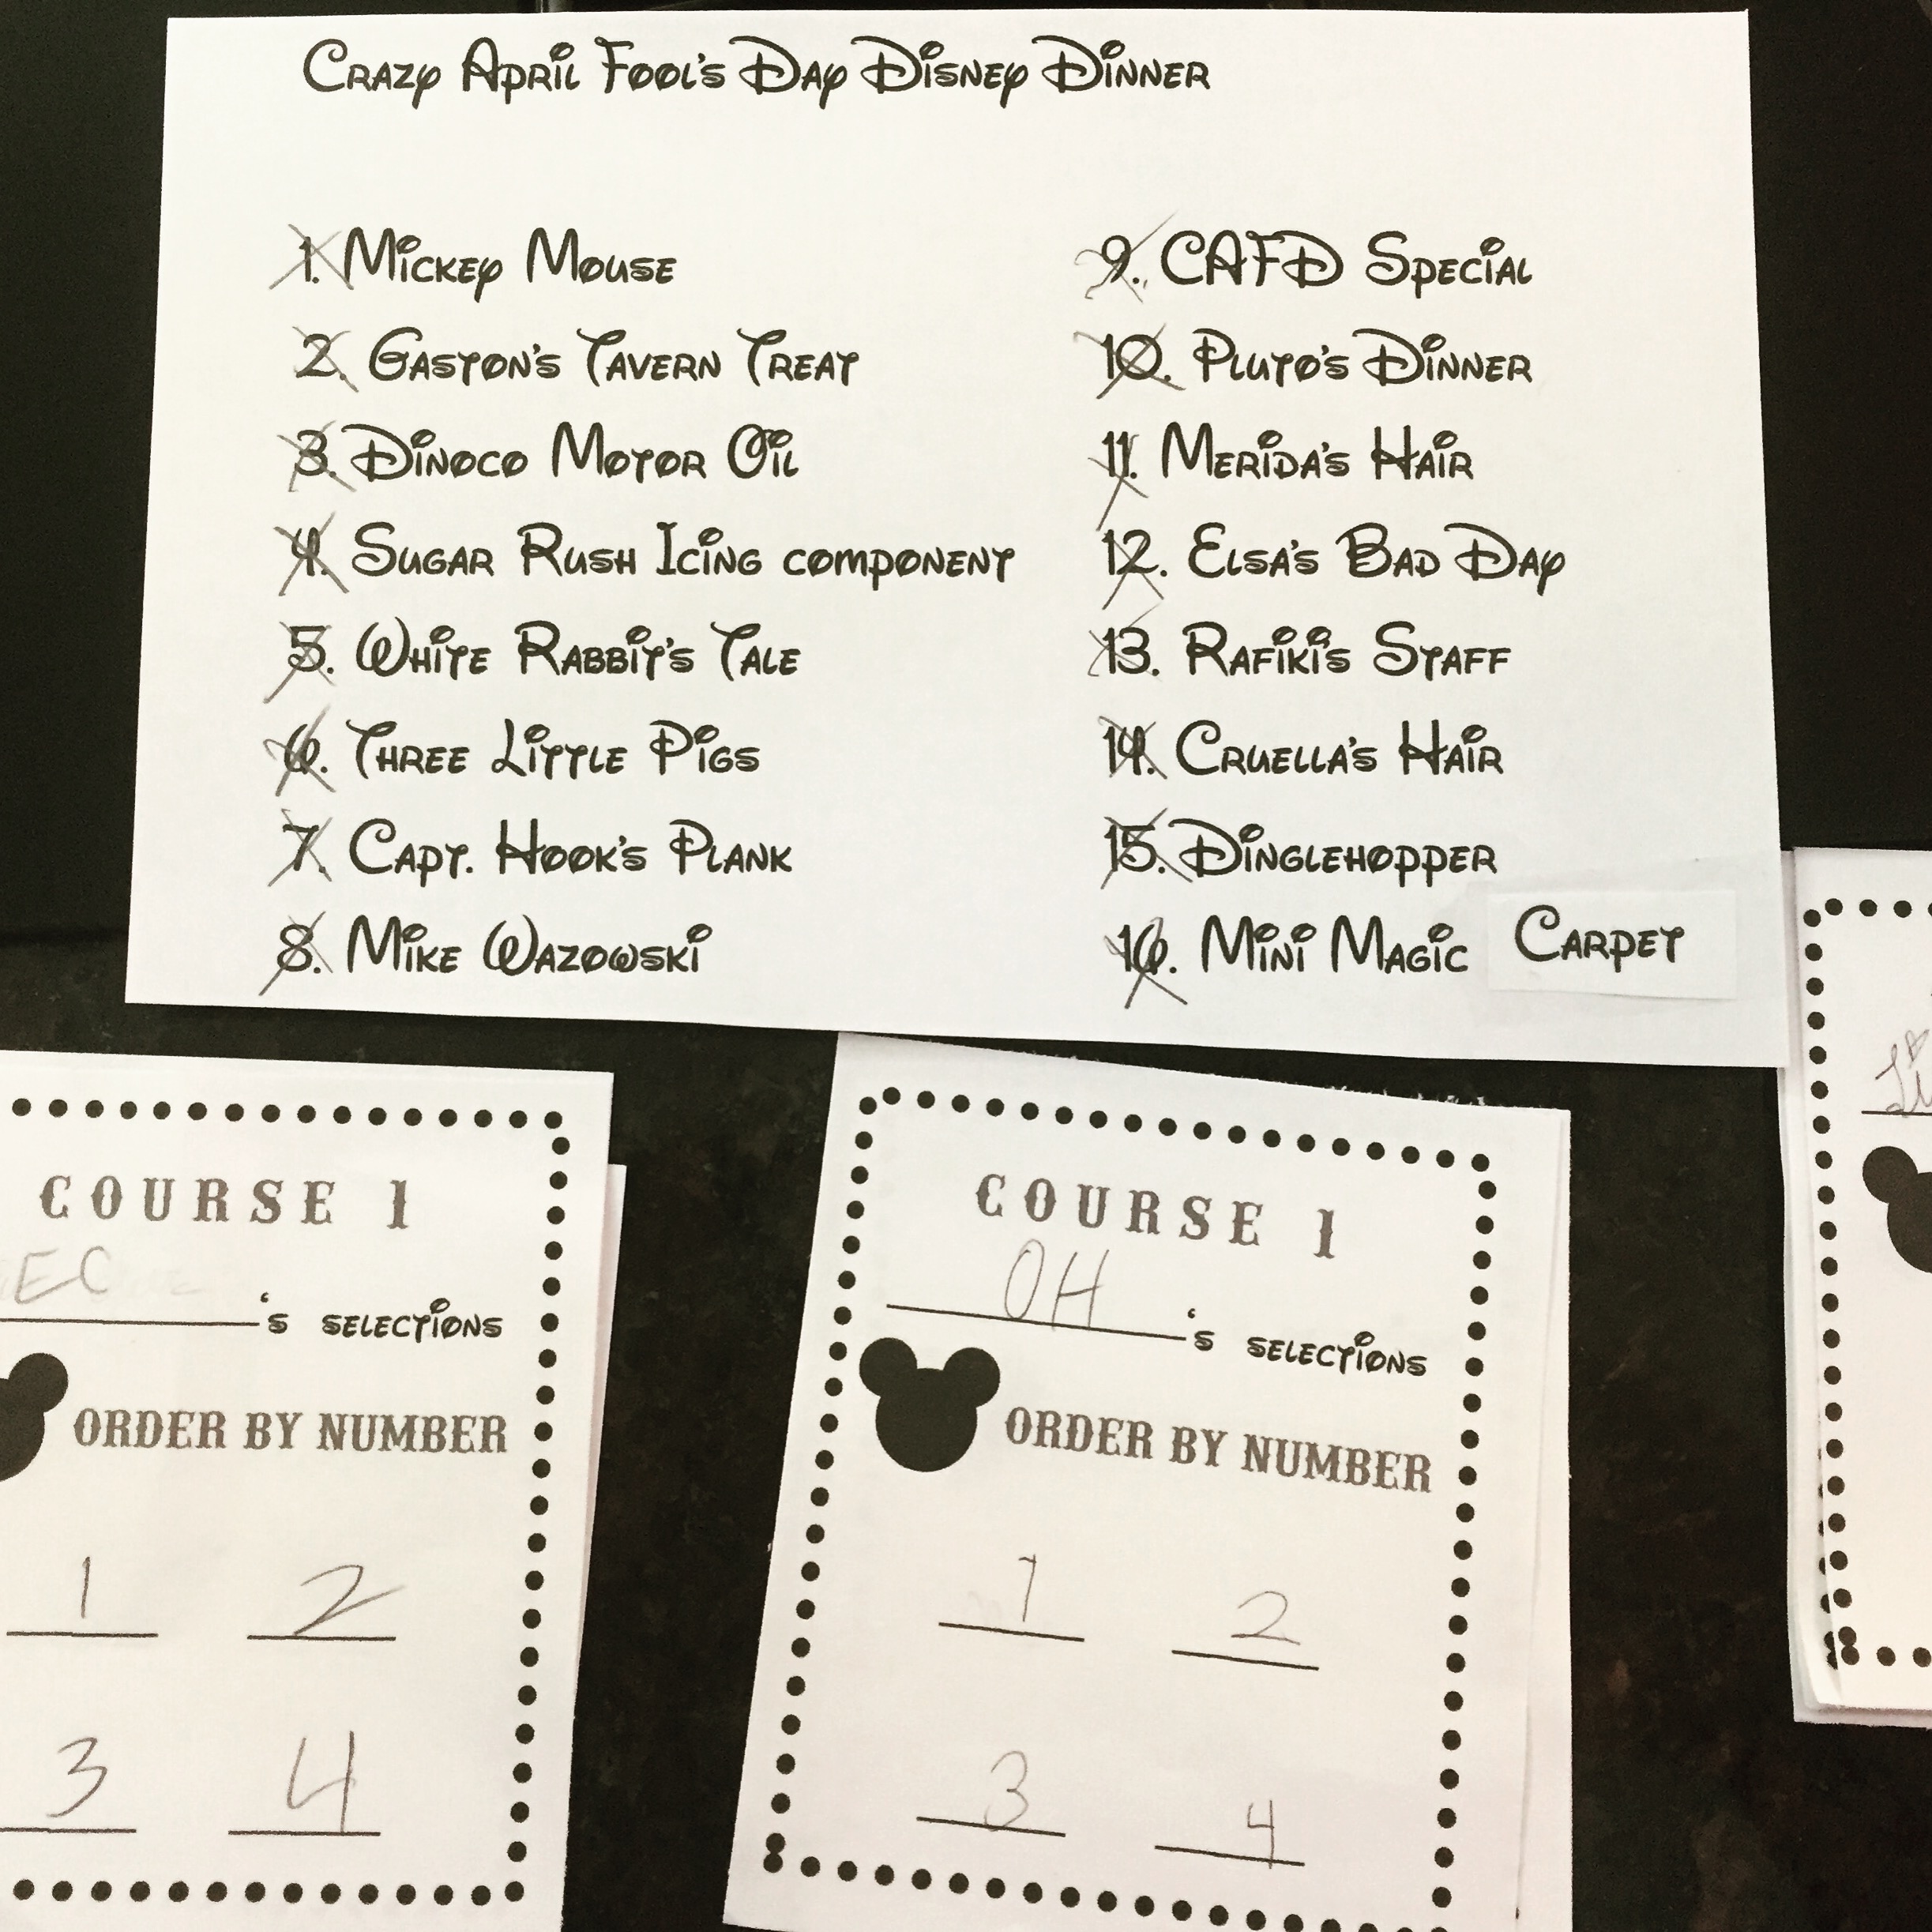 Crazy April Fool's Day Disney Dinner
1. Mickey Mouse
2. Gaston's Tavern Treat
3. Dinoco Motor Oil
4. Sugar Rush Icing component
5. White Rabbit's Tale
6. Three Little Pigs
7. Capt. Hook's Plank
8. Mike Wazowski
9. CAFD Special
10. Pluto's Dinner
11. Merida's Hair
12. Elsa's Bad Day
13. Rafiki's Staff
14. Cruella's Hair
15. Dinglehopper
16. Mini Magic Carpet
COURSE 1
EC
's selections
ORDER BY NUMBER
1 2
3 4
COURSE 1
OH
's selections
ORDER BY NUMBER
1 2
3 4